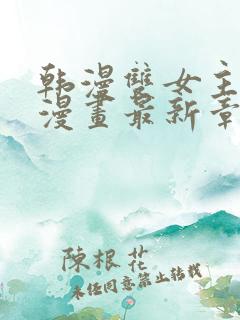 韩漫雙女主
漫畫最新章
陳根花
未经同意禁止转载